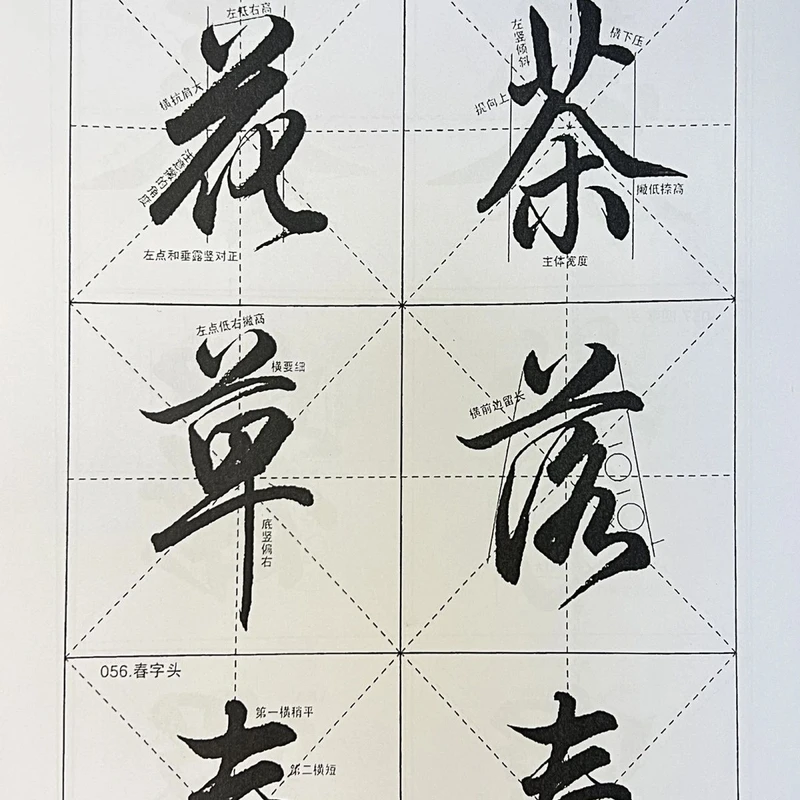 左低右高
横抗肩大
花
注意撇的角度
左点和垂露竖对正
左竖倾斜
横下压
提向上
茶
撇低捺高
主体宽度
左点低右撇高
横要细
草
底竖偏右
横前边留长
落
056.春字头
第一横稍平
第二横短